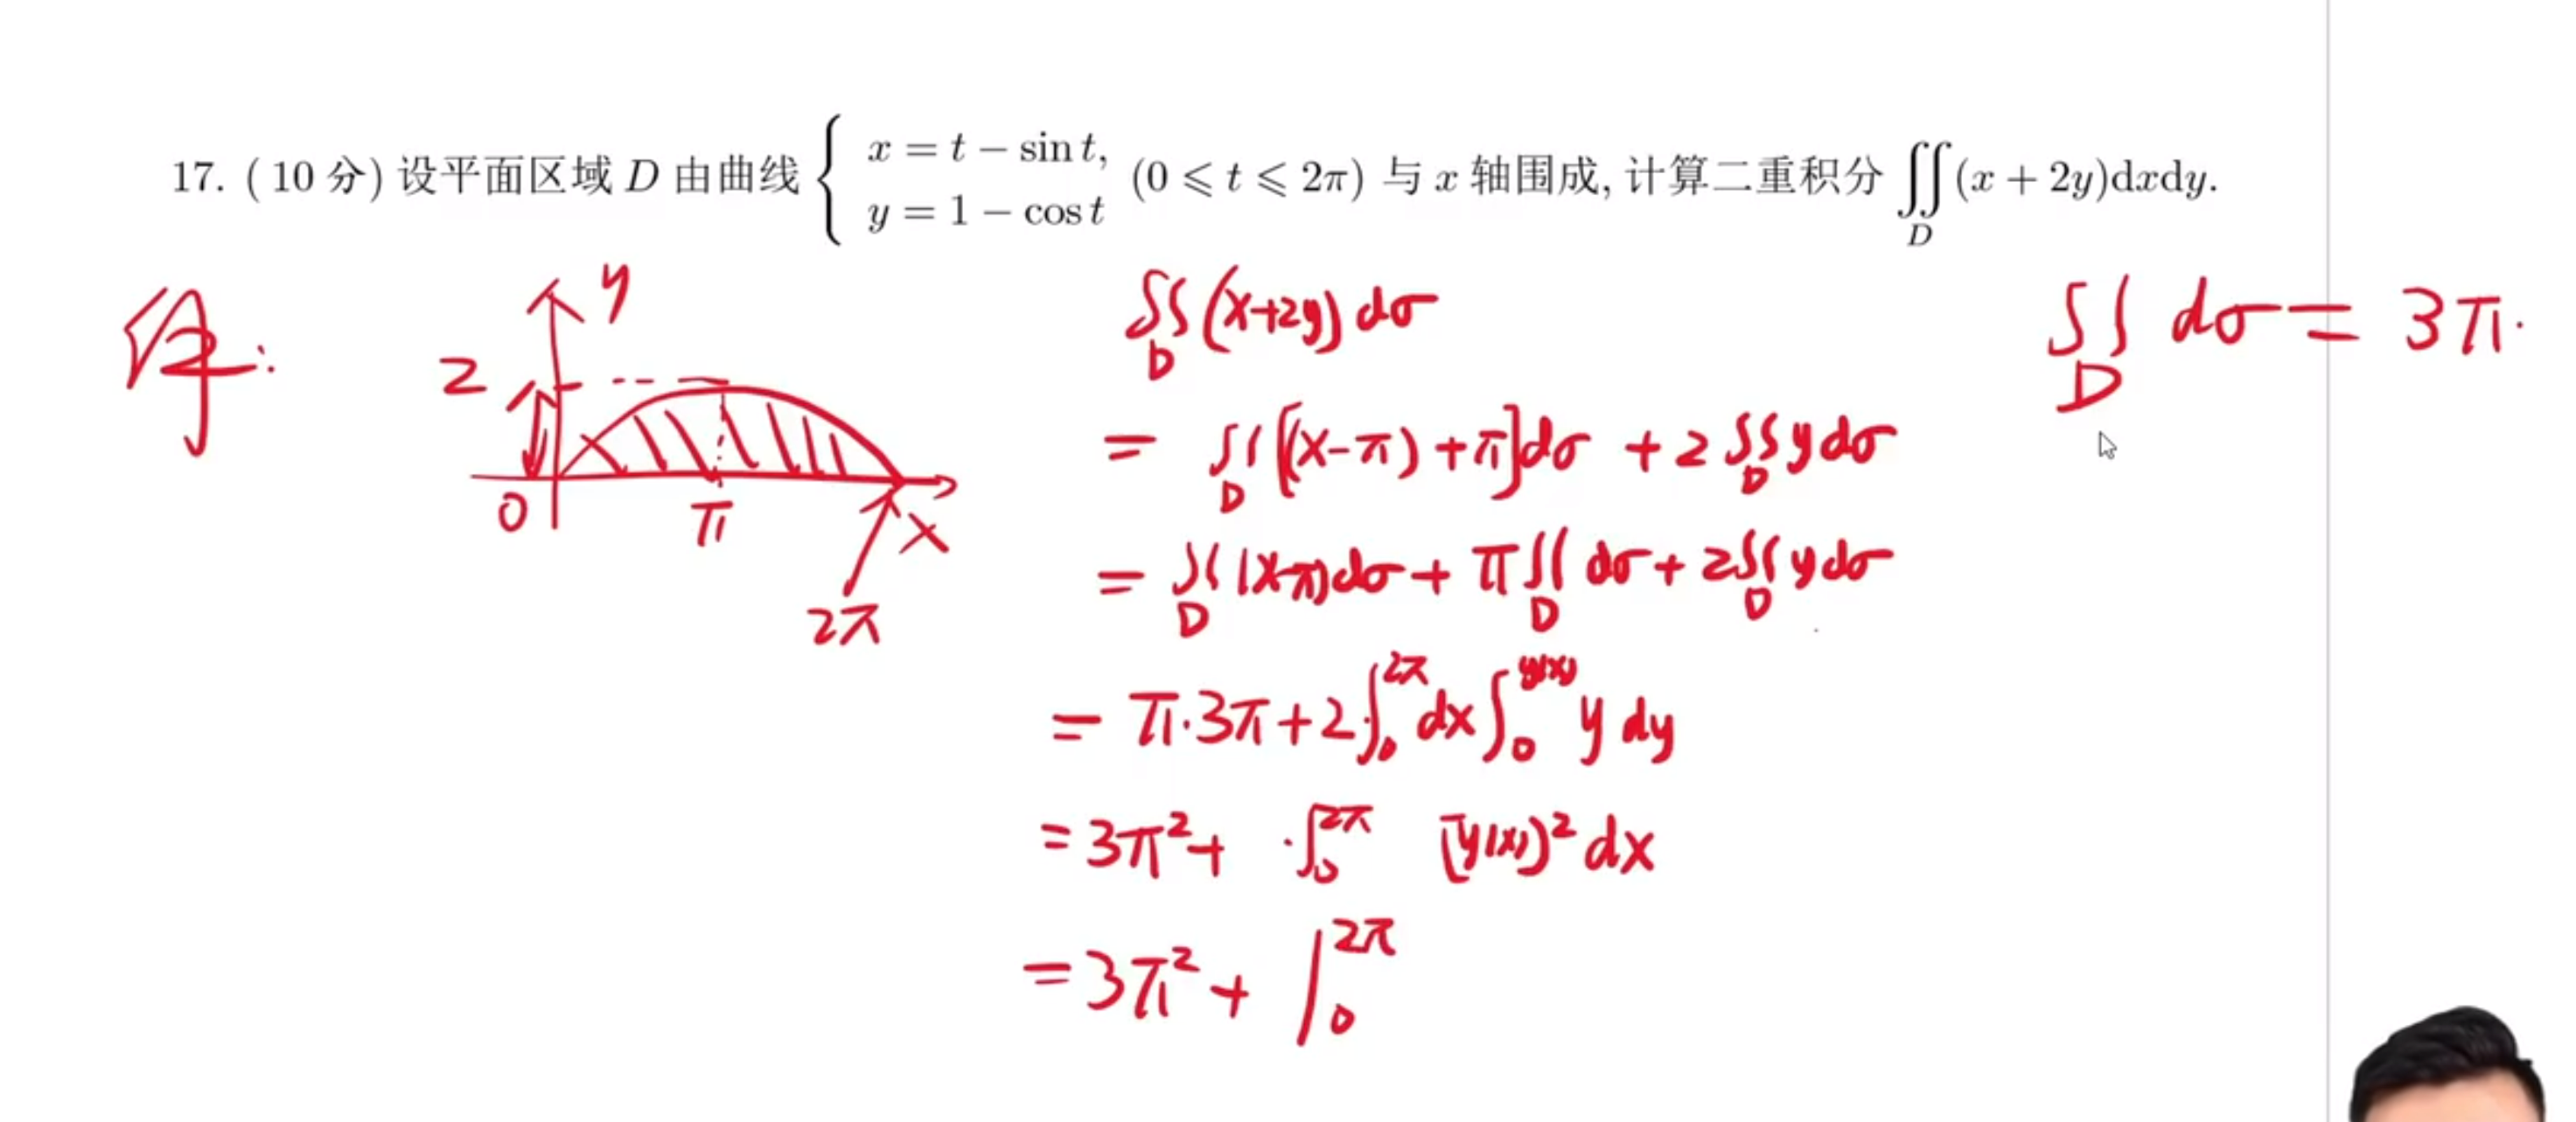 17. (10 分) 设平面区域 D 由曲线 { x = t − sin t, y = 1 − cos t (0 ⩽ t ⩽ 2π) 与 x 轴围成, 计算二重积分 ∬_D (x + 2y)dxdy.
解:
y
2
0
π
x
2π
∬_D (x+2y) dσ
= ∬_D [(x−π)+π]dσ + 2∬_D y dσ
= ∬_D (x−π)dσ + π∬_D dσ + 2∬_D y dσ
= π·3π + 2·∫_0^{2π} dx ∫_0^{y(x)} y dy
= 3π² + ·∫_0^{2π} [y(x)]² dx
= 3π² + ∫_0^{2π}
∬_D dσ = 3π.